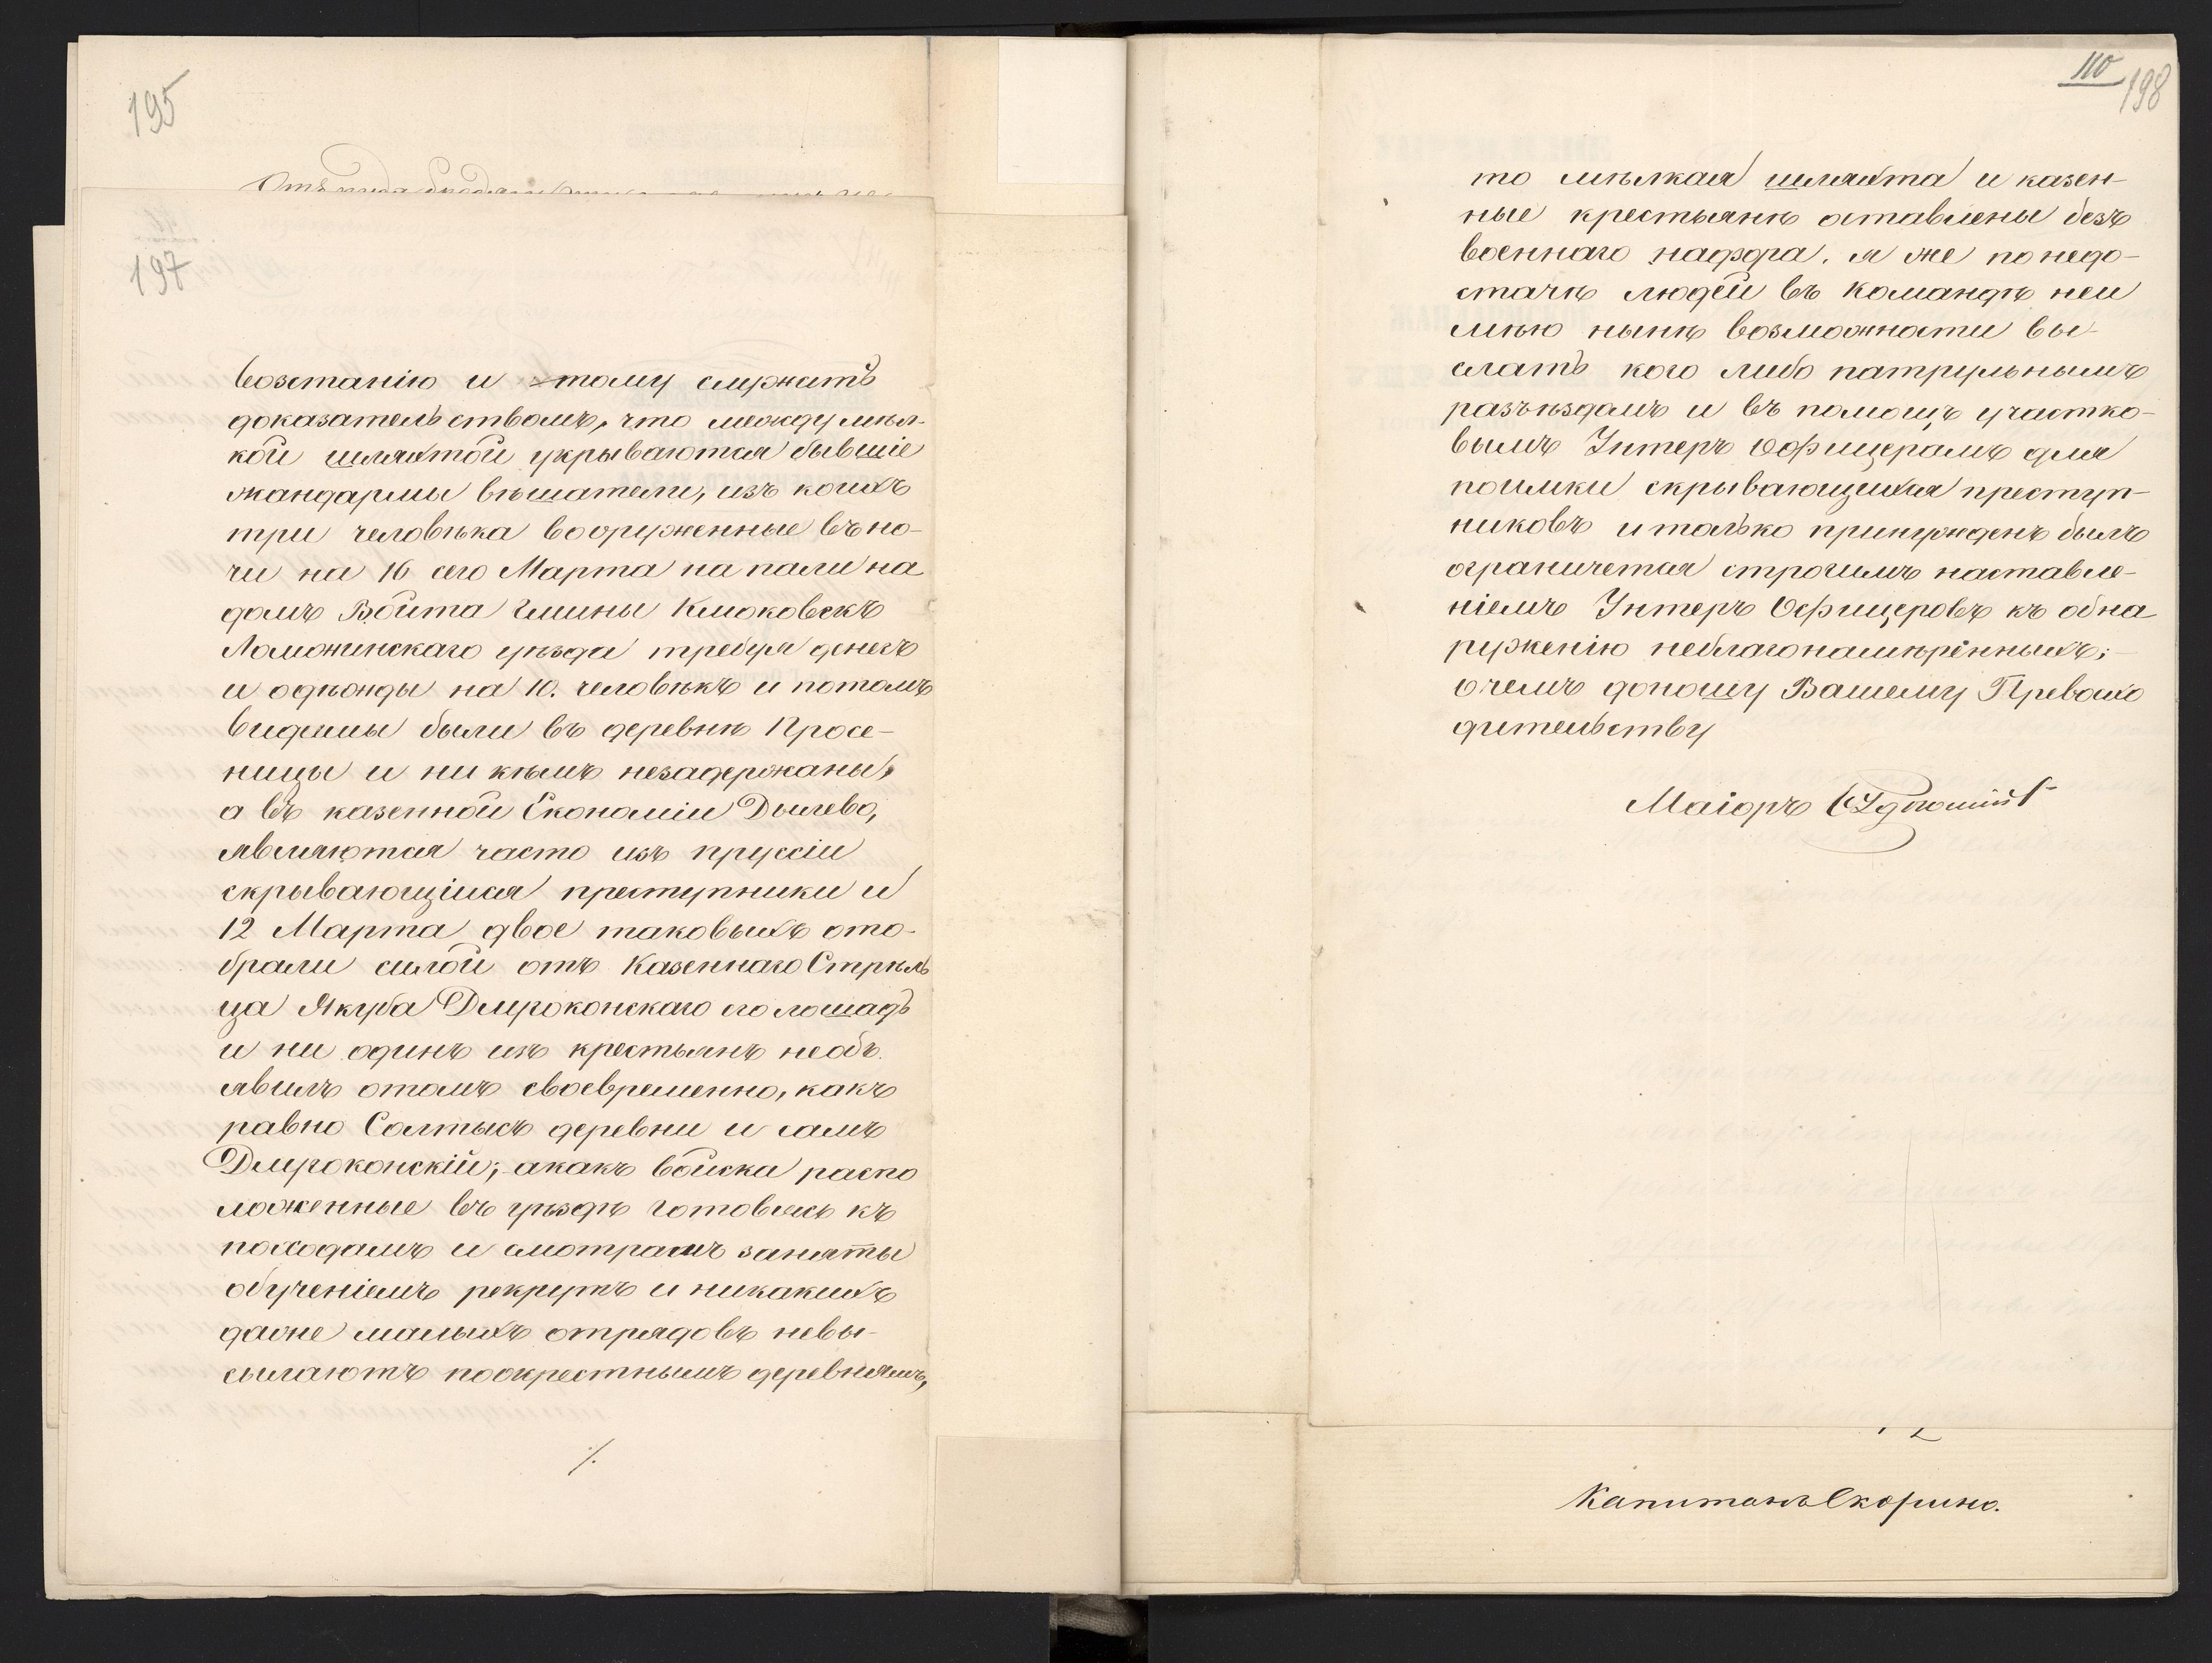 195
197
возстанію и тому служитъ
доказательствомъ, что между мѣл-
кой шляхтой укрываются бывшіе
жандармы вѣшатели, изъ коихъ
три человѣка вооруженные въ но-
чи на 16 сего Марта напали на
домъ Войта Гмины Клюковскъ
Ломжинскаго уѣзда требуя денегъ
и одѣожды на 10. человѣкъ и потомъ
видимы были въ деревнѣ Просе-
ницы и ни кѣмъ незадержаны,
а въ казенной Економіи Дылево,
являются часто изъ пруссіи
скрывающіися преступники и
12 Марта двое таковыхъ ото-
брали силой отъ Казеннаго Стрѣль
ца Якуба Дмроконскаго его лошадь
и ни одинъ изъ крестьянъ необъ.
явилъ отомъ своевременно, какъ
равно Солтысъ деревни и самъ
Дмроконскій; акакъ войска распо
ложенные въ уѣздѣ готовясь къ
походамъ и смотрамъ заняты
обученіемъ рекрутъ и никакихъ
даже малыхъ отрядовъ невы-
сылаютъ поокрестнымъ деревнямъ,
./.
110
198
то мѣлкая шляхта и казен-
ные крестьянѣ оставлены безъ
военнаго надзора. я же по недо-
стачѣ людей въ командѣ неи
мѣю нынѣ возможности вы-
слать кого либо патрульнымъ
разъѣздамъ и въ помощъ участко-
вымъ Унтеръ Оофицерамъ для
поимки скрывающихся преступ-
никовъ итолько принужденъ былъ
ограничется строгимъ наставле-
ніемъ Унтеръ Осфицеровъ къ обна
руженію неблагонамѣренныхъ;
очемъ доношу Вашему Превосхо
дительству
Маіоръ
Капитанъ Скорино.